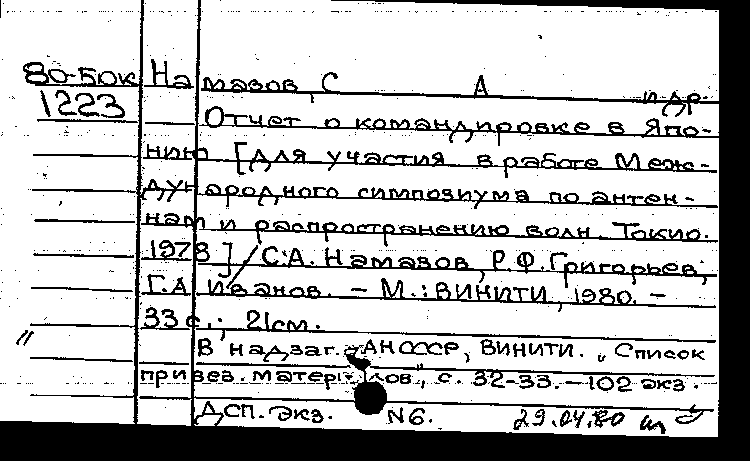 80-5ок Намазов, С А и др.
1223 Отчет о командировке в Япо-
нию [для участия в работе Меж-
дународного симпозиума по антен-
нам и распространению волн. Токио.
1978] / С.А. Намазов, Р.Ф. Григорьев,
Г.А Иванов. - М.: ВИНИТИ, 1980. -
33 с.; 21см.
В надзаг.: АН СССР, ВИНИТИ. „Список
привез. материалов", с. 32-33. - 102 экз.
ДСП. Экз. N6. 29.04.80